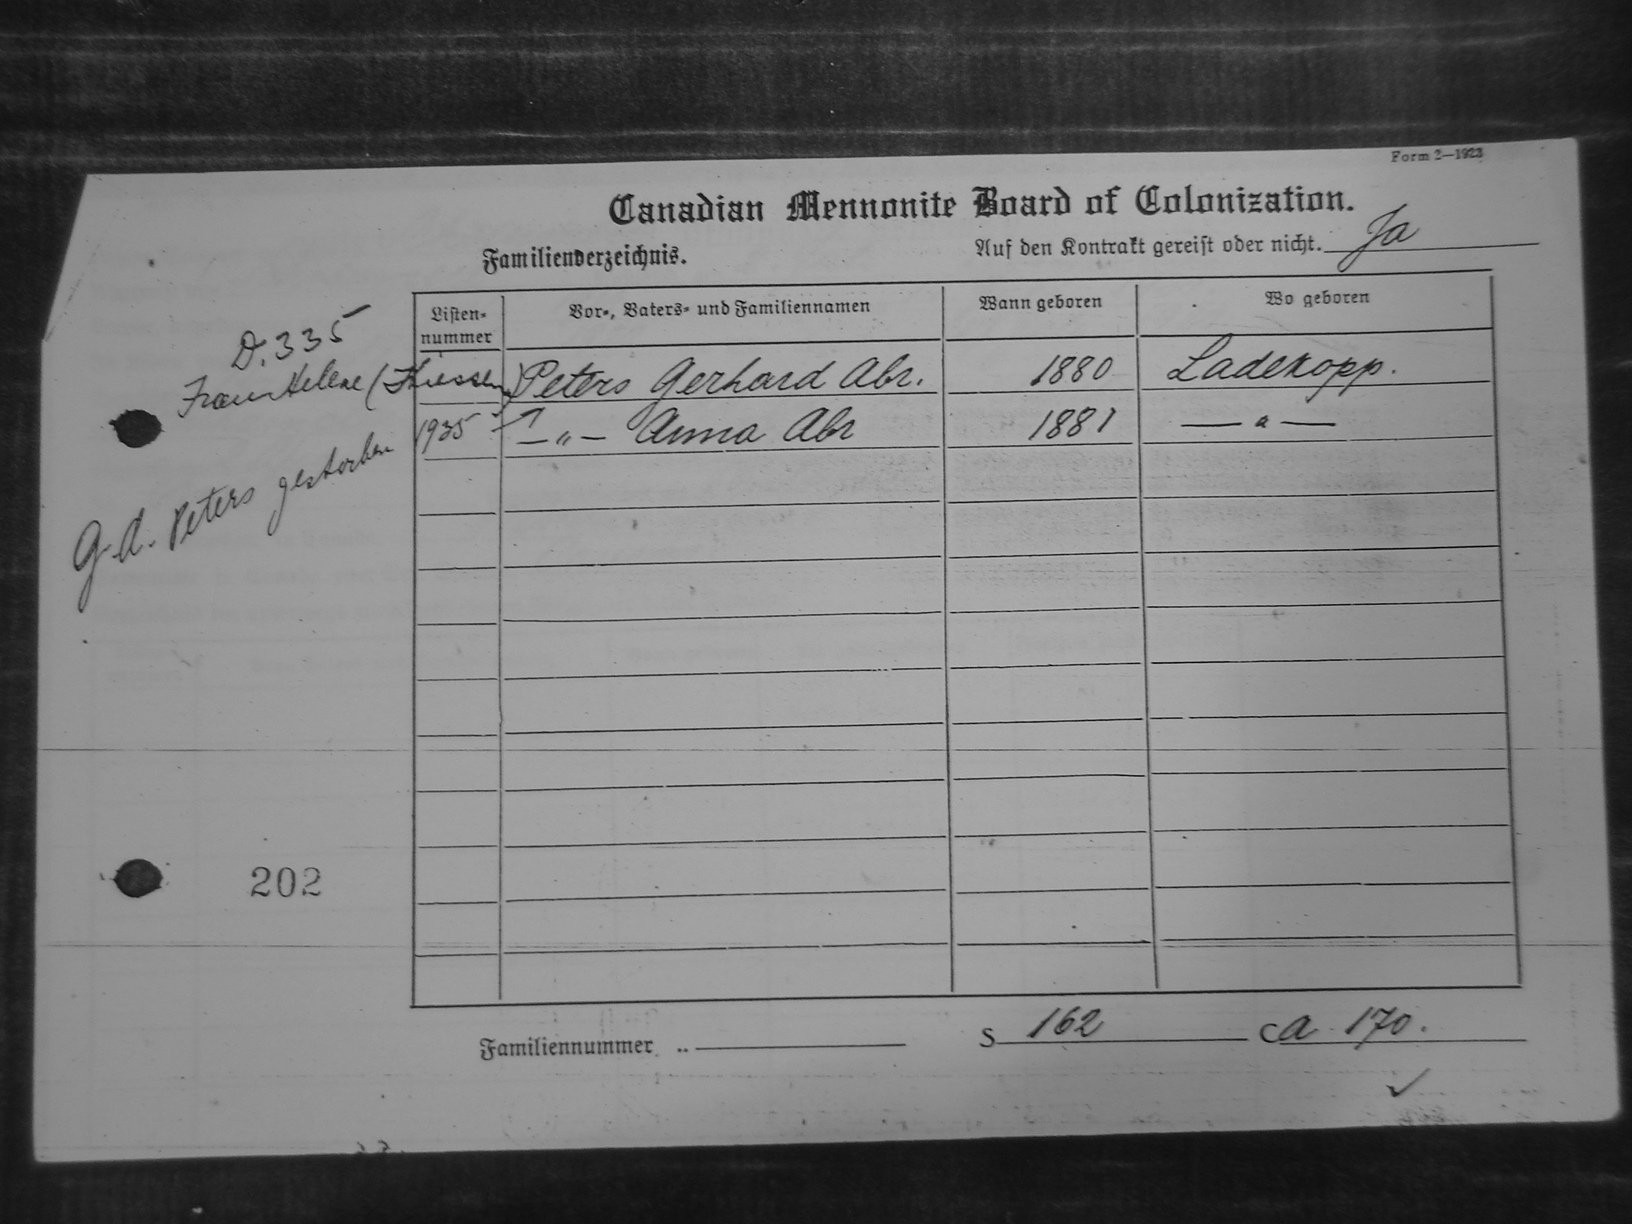 Form 2—1923
Canadian Mennonite Board of Colonization.
Familienverzeichnis. Auf den Kontrakt gereist oder nicht. Ja
Listen-nummer Vor-, Vaters- und Familiennamen Wann geboren Wo geboren
D. 335
Frau Helene (Thiessen) Peters Gerhard Abr. 1880 Ladekopp.
1935 —„— Anna Abr 1881 —„—
G. A. Peters gestorben
202
Familiennummer .. S 162 CA 170.